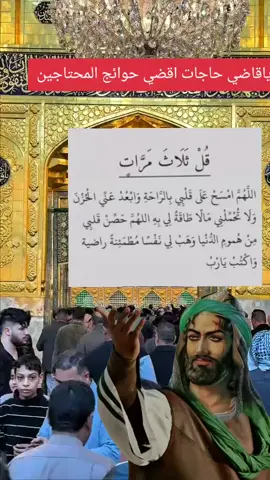 ياقاضي حاجات اقضي حوائج المحتاجين
قُلْ ثَلَاثَ مَرَّاتٍ
اللَّهُمَّ امْسَحْ عَلَى قَلْبِي بِالرَّاحَةِ وَابْعُدْ عَنِّي الحُزْنَ
وَلَا تُحَمِّلْنِي مَالَا طَاقَةَ لِي بِهِ اللهُمَّ حَصِّنْ قَلْبِي
مِنْ هُمومِ الدُّنْيَا وَهَبْ لِي نَفْسًا مُطْمَئِنَةً راضية
وَاكْتُبْ يَارَبْ